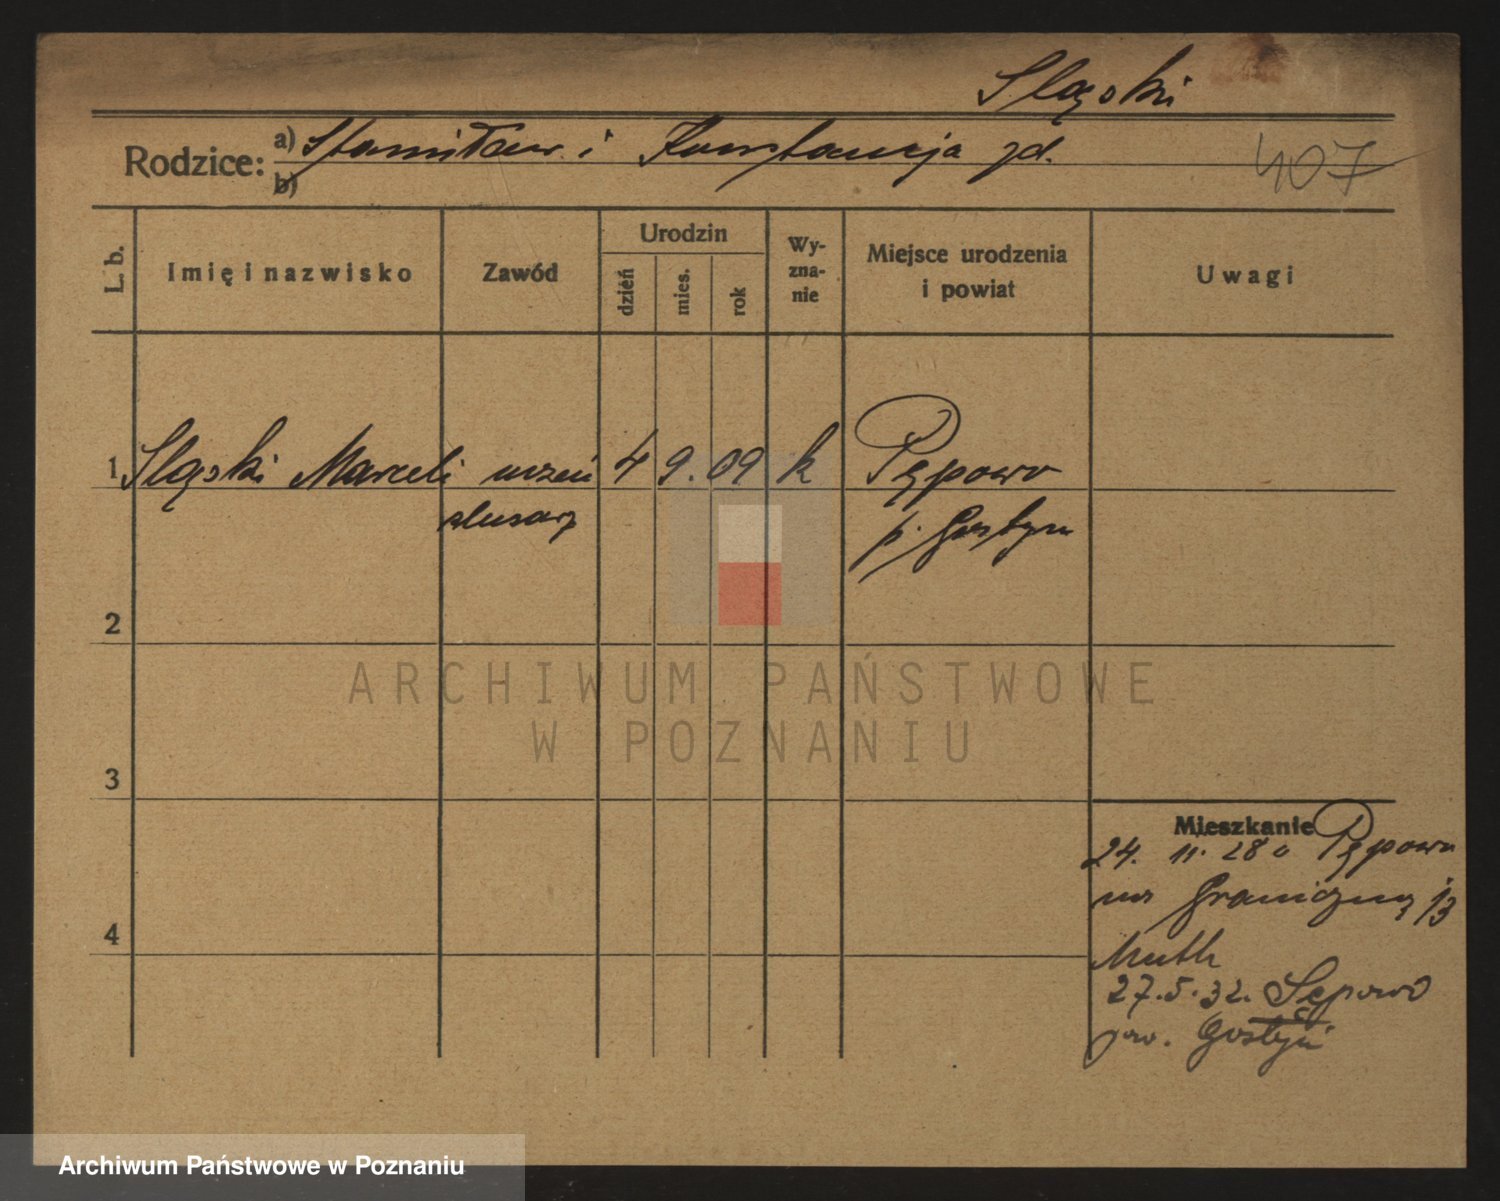 Sląski
Rodzice: a) Stanisław i Konstancja zd.
b)
407
L. b. Imię i nazwisko Zawód Urodzin dzień mies. rok Wy-zna-nie Miejsce urodzenia i powiat Uwagi
1 Sląski Marceli uczeń 4 9. 09 k Pępowo
slusarz p. Gostyn
2
3
4
Mieszkanie
24. 11. 28 o Pępowo
na Graniczną 13
Muth
27.5.32. Sępowo
pow. Gostyń
ARCHIWUM PAŃSTWOWE
W POZNANIU
Archiwum Państwowe w Poznaniu